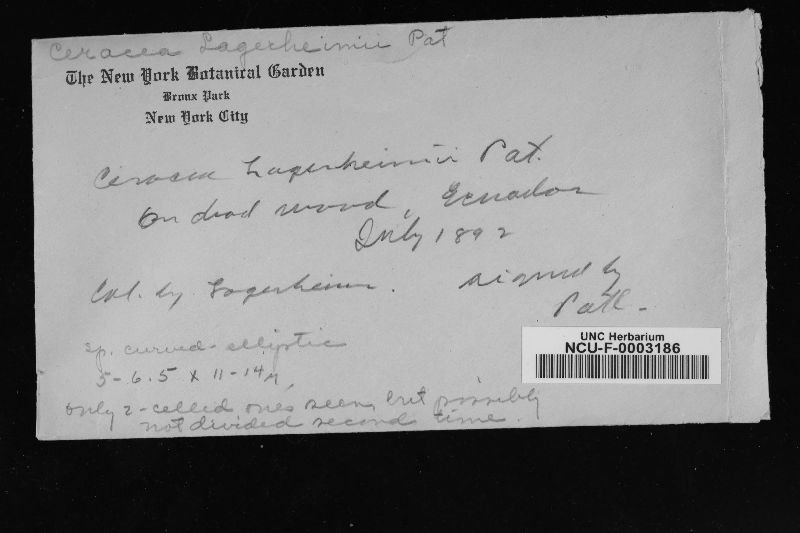 Ceracea Lagerheimii Pat
The New York Botanical Garden
Bronx Park
New York City
Ceracea Lagerheimii Pat.
On dead wood, Ecuador
July 1892
Col. by Lagerheim. signed by
Patl-
UNC Herbarium
NCU-F-0003186
sp. curved-elliptic
5-6.5 x 11-14μ,
only 2-celled ones seen, but possibly
not divided second time.